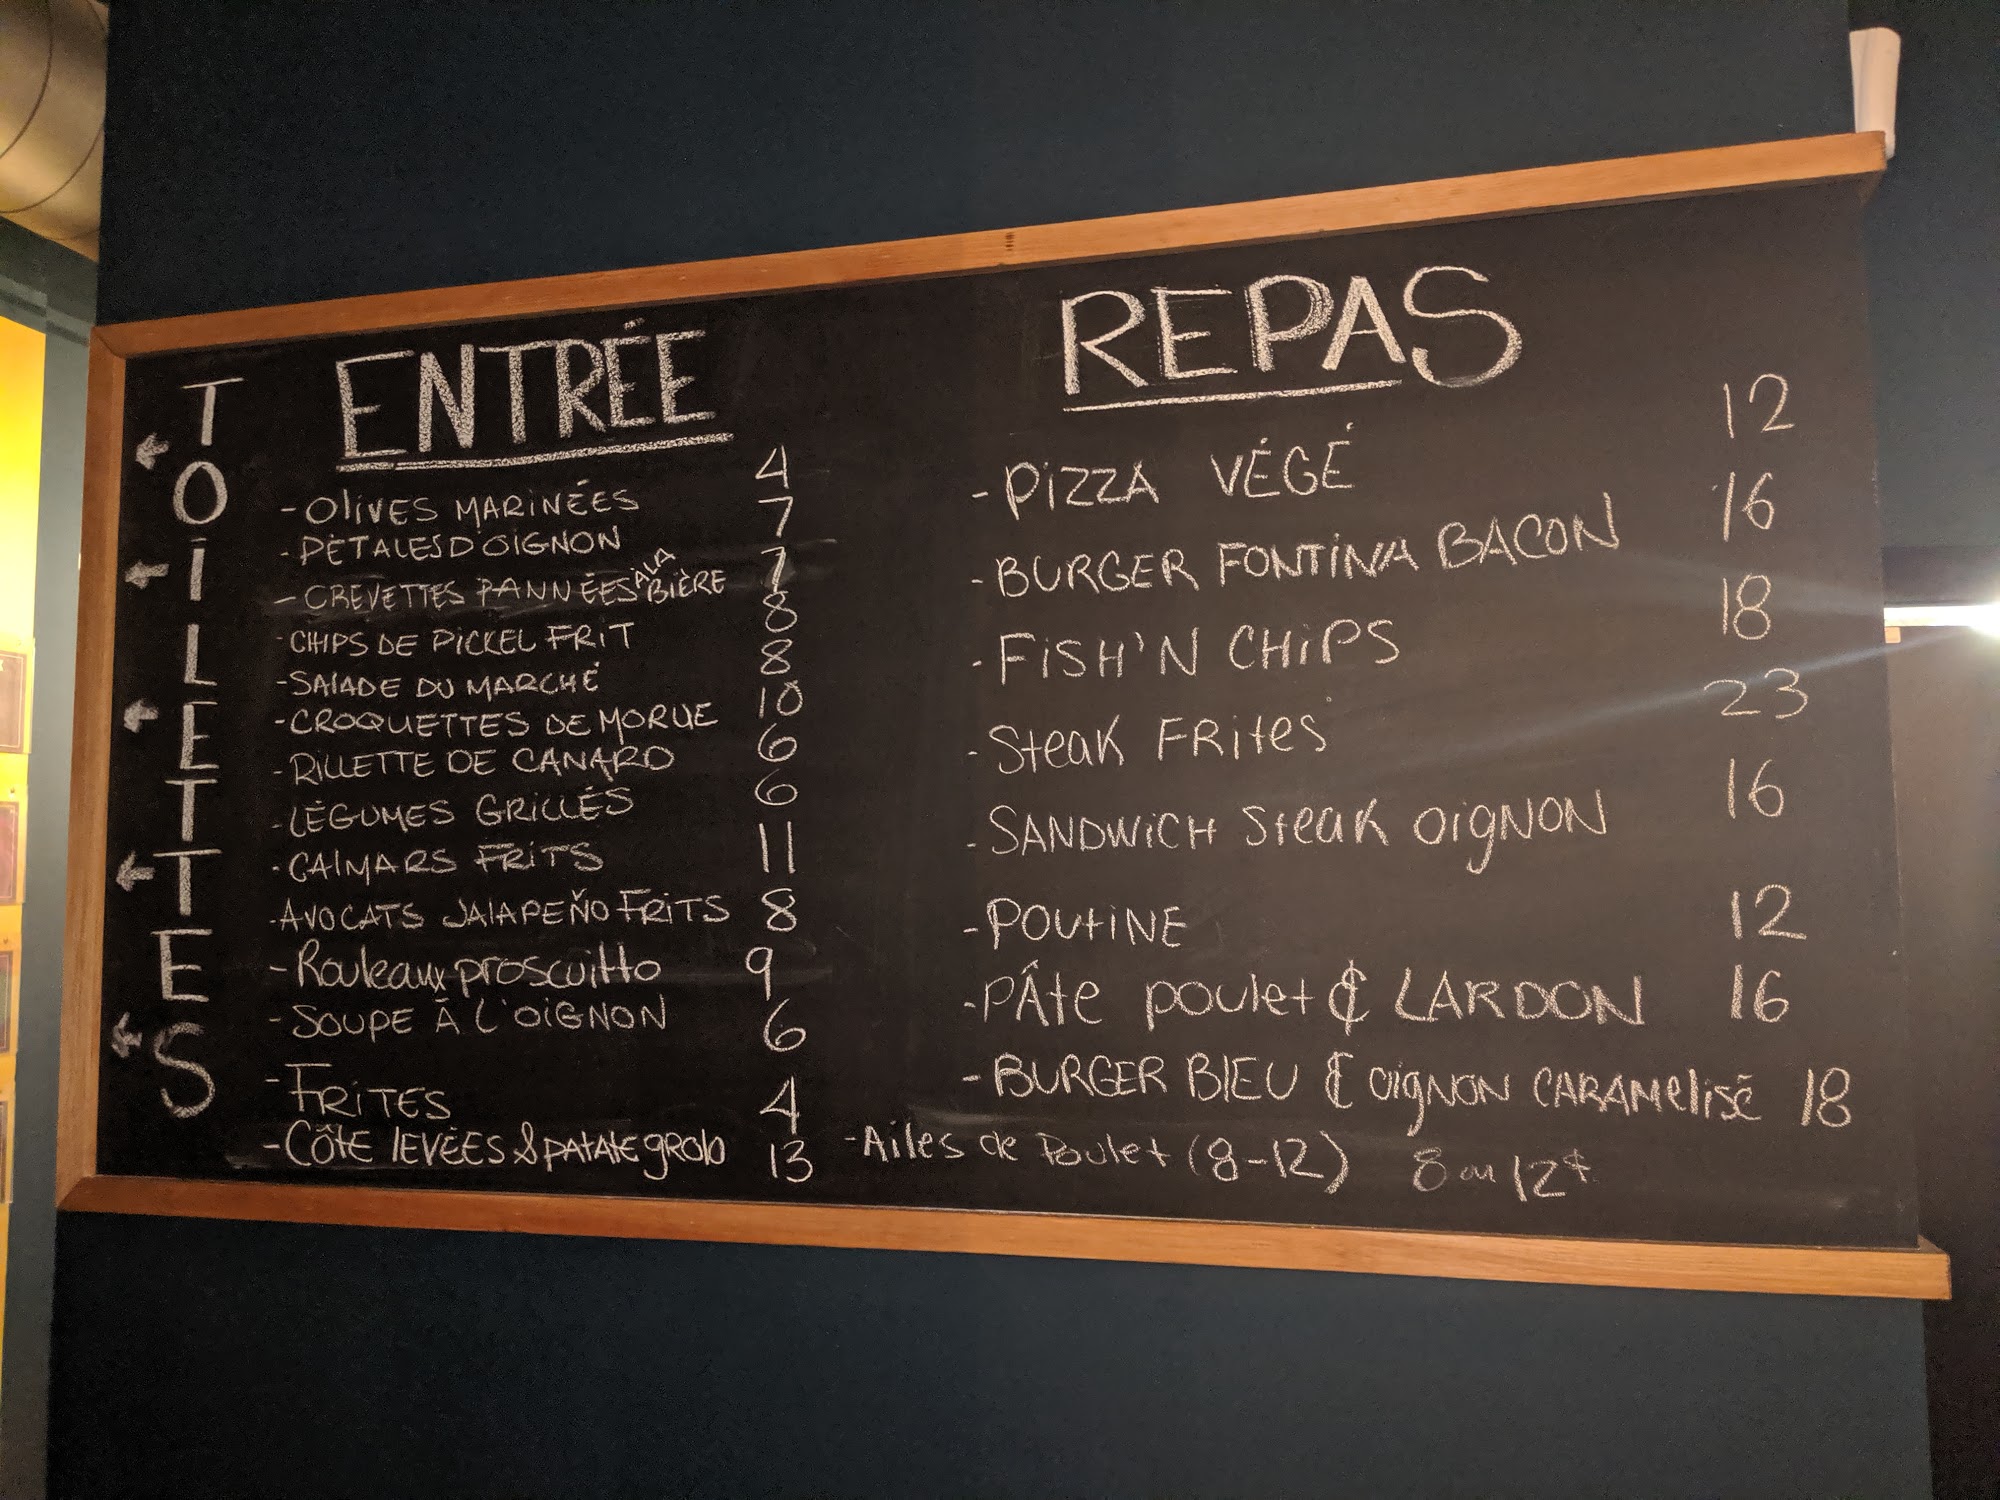 TOILETTES
ENTRÉE
- OLIVES MARINÉES 4
- PÉTALES D'OIGNON 7
- CREVETTES PANNÉES À LA BIÈRE 7
- CHIPS DE PICKEL FRIT 8
- SALADE DU MARCHÉ 8
- CROQUETTES DE MORUE 10
- RILLETTE DE CANARD 6
- LÉGUMES GRILLÉS 6
- CALMARS FRITS 11
- AVOCATS JALAPEÑO FRITS 8
- Rouleaux proscuitto 9
- SOUPE À L'OIGNON 6
- FRITES 4
- CÔTE LEVÉES & PATATE grolo 13
REPAS
- PIZZA VÉGÉ 12
- BURGER FONTINA BACON 16
- FISH'N CHIPS 18
- Steak FRites 23
- SANDWICH Steak OigNON 16
- POUTINE 12
- PÂte poulet & LARDON 16
- BURGER BLEU & OIGNON CARAMELISÉ 18
- Ailes de Poulet (8-12) 8 ou 12$